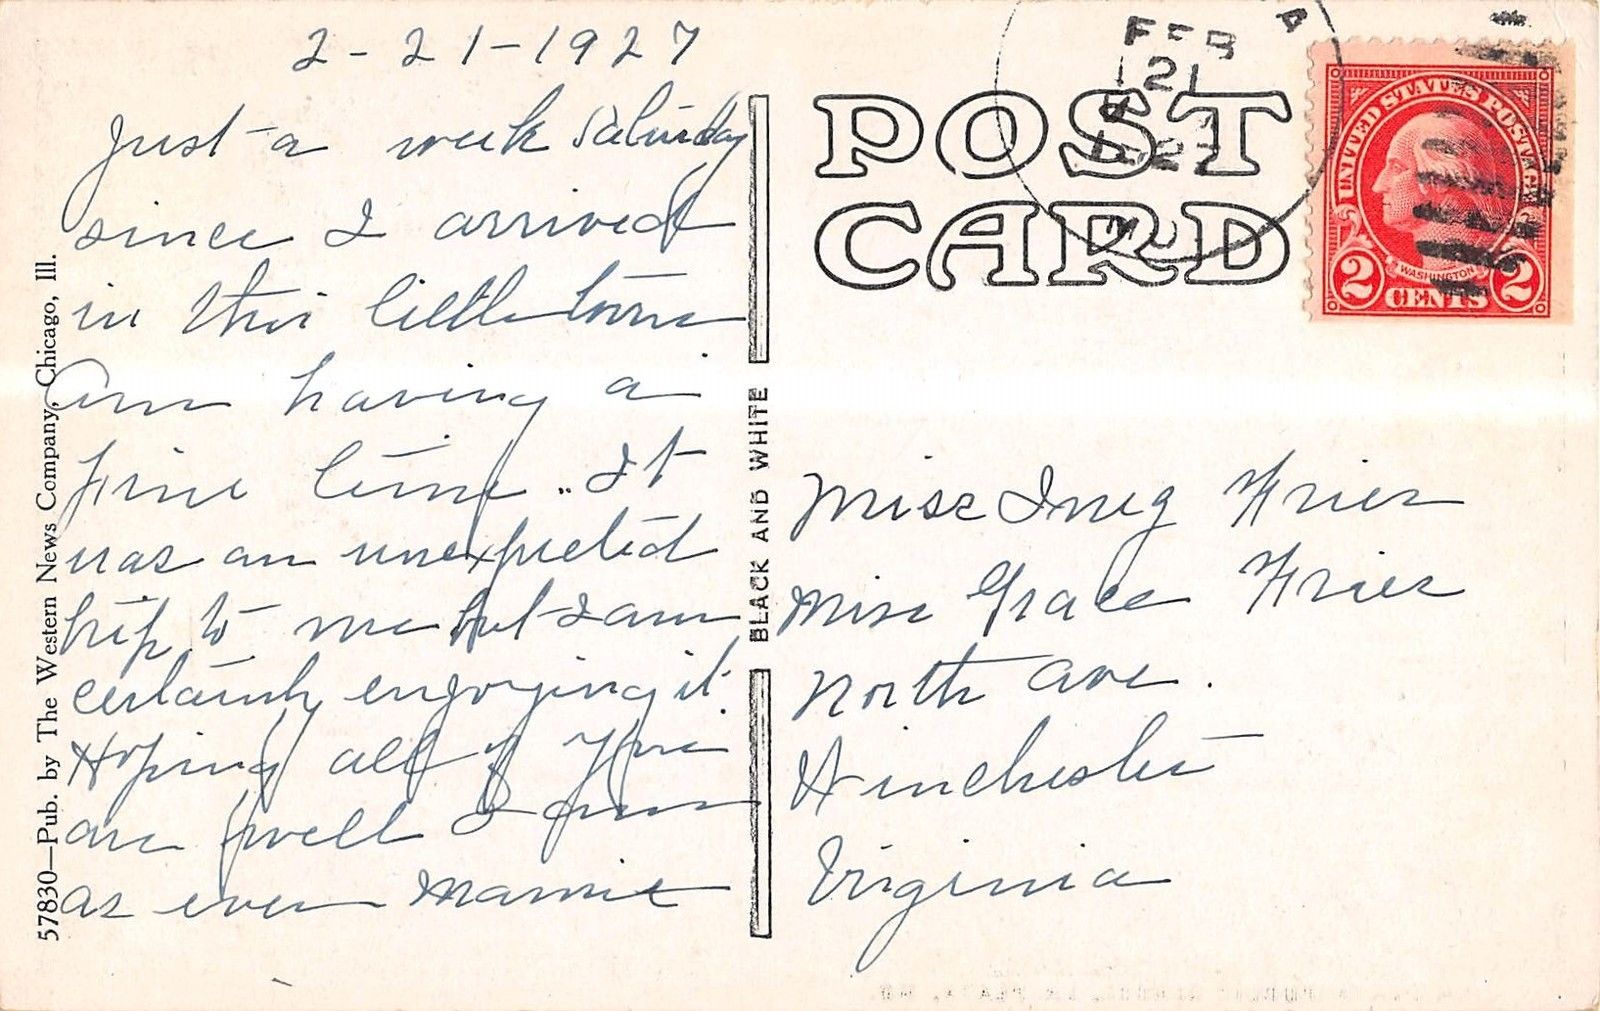 2-21-1927
Just a week Saturday
since I arrived
in this little town
am having a
fine time.. It
was an unexpected
trip to me but I am
certainly enjoying it.
Hoping all of you
are well I am
as ever Mamie
57830—Pub. by The Western News Company, Chicago, Ill.
BLACK AND WHITE
POST
CARD
FEB
21
UNITED STATES POSTAGE
WASHINGTON
2 CENTS 2
Miss Inez Frier
Miss Grace Frier
North Ave.
Winchester
Virginia